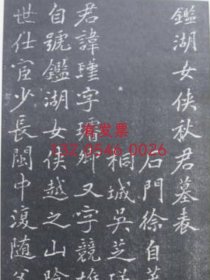 鑑湖女俠秋君墓表
石門徐自華
桐城吳芝瑛
君諱瑾字璿卿又字競雄
自號鑑湖女俠越之山陰
世仕宦少長閩中復隨父
发票